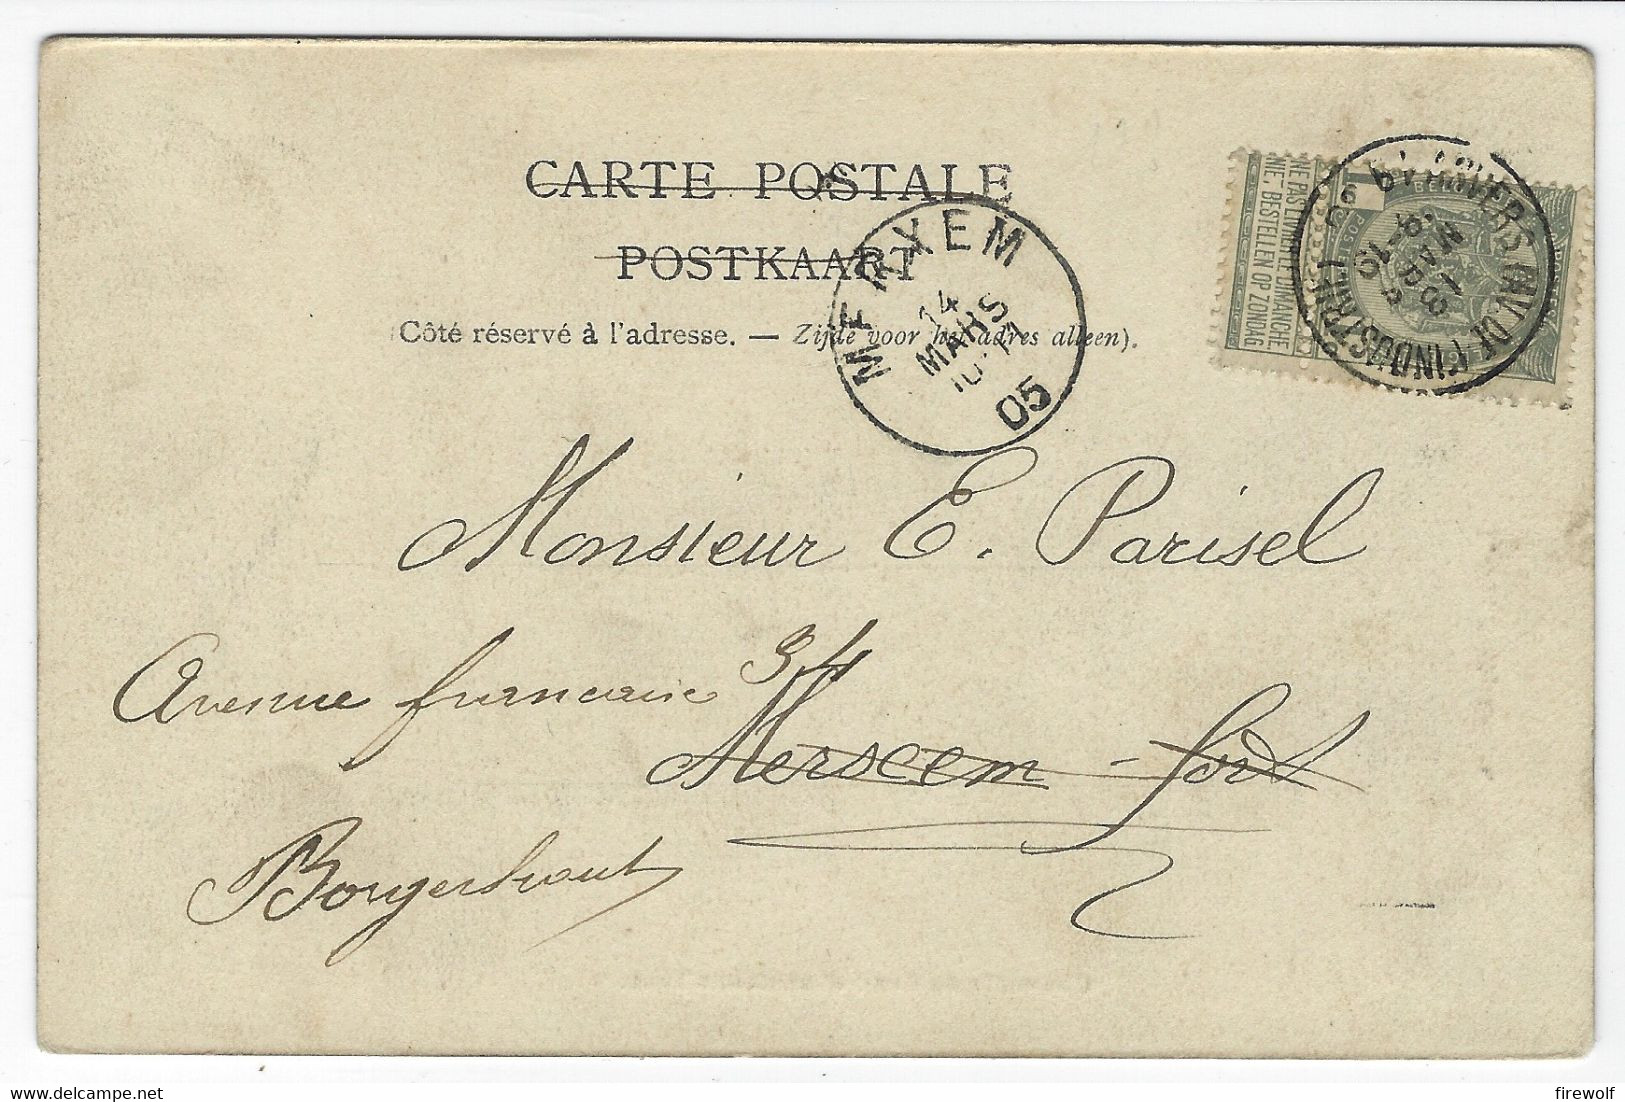 CARTE POSTALE
POSTKAART
(Côté réservé à l'adresse. — Zijde voor het adres alleen).
MERXEM
14
MARS
05
NE PAS LIVRER LE DIMANCHE
NIET BESTELLEN OP ZONDAG
ANVERS (AV. DE L'INDUSTRIE)
13
MAR
Monsieur E. Parisel
34
Avenue francaise
Merxem - fort
Borgerhout
delcampe.net
firewolf